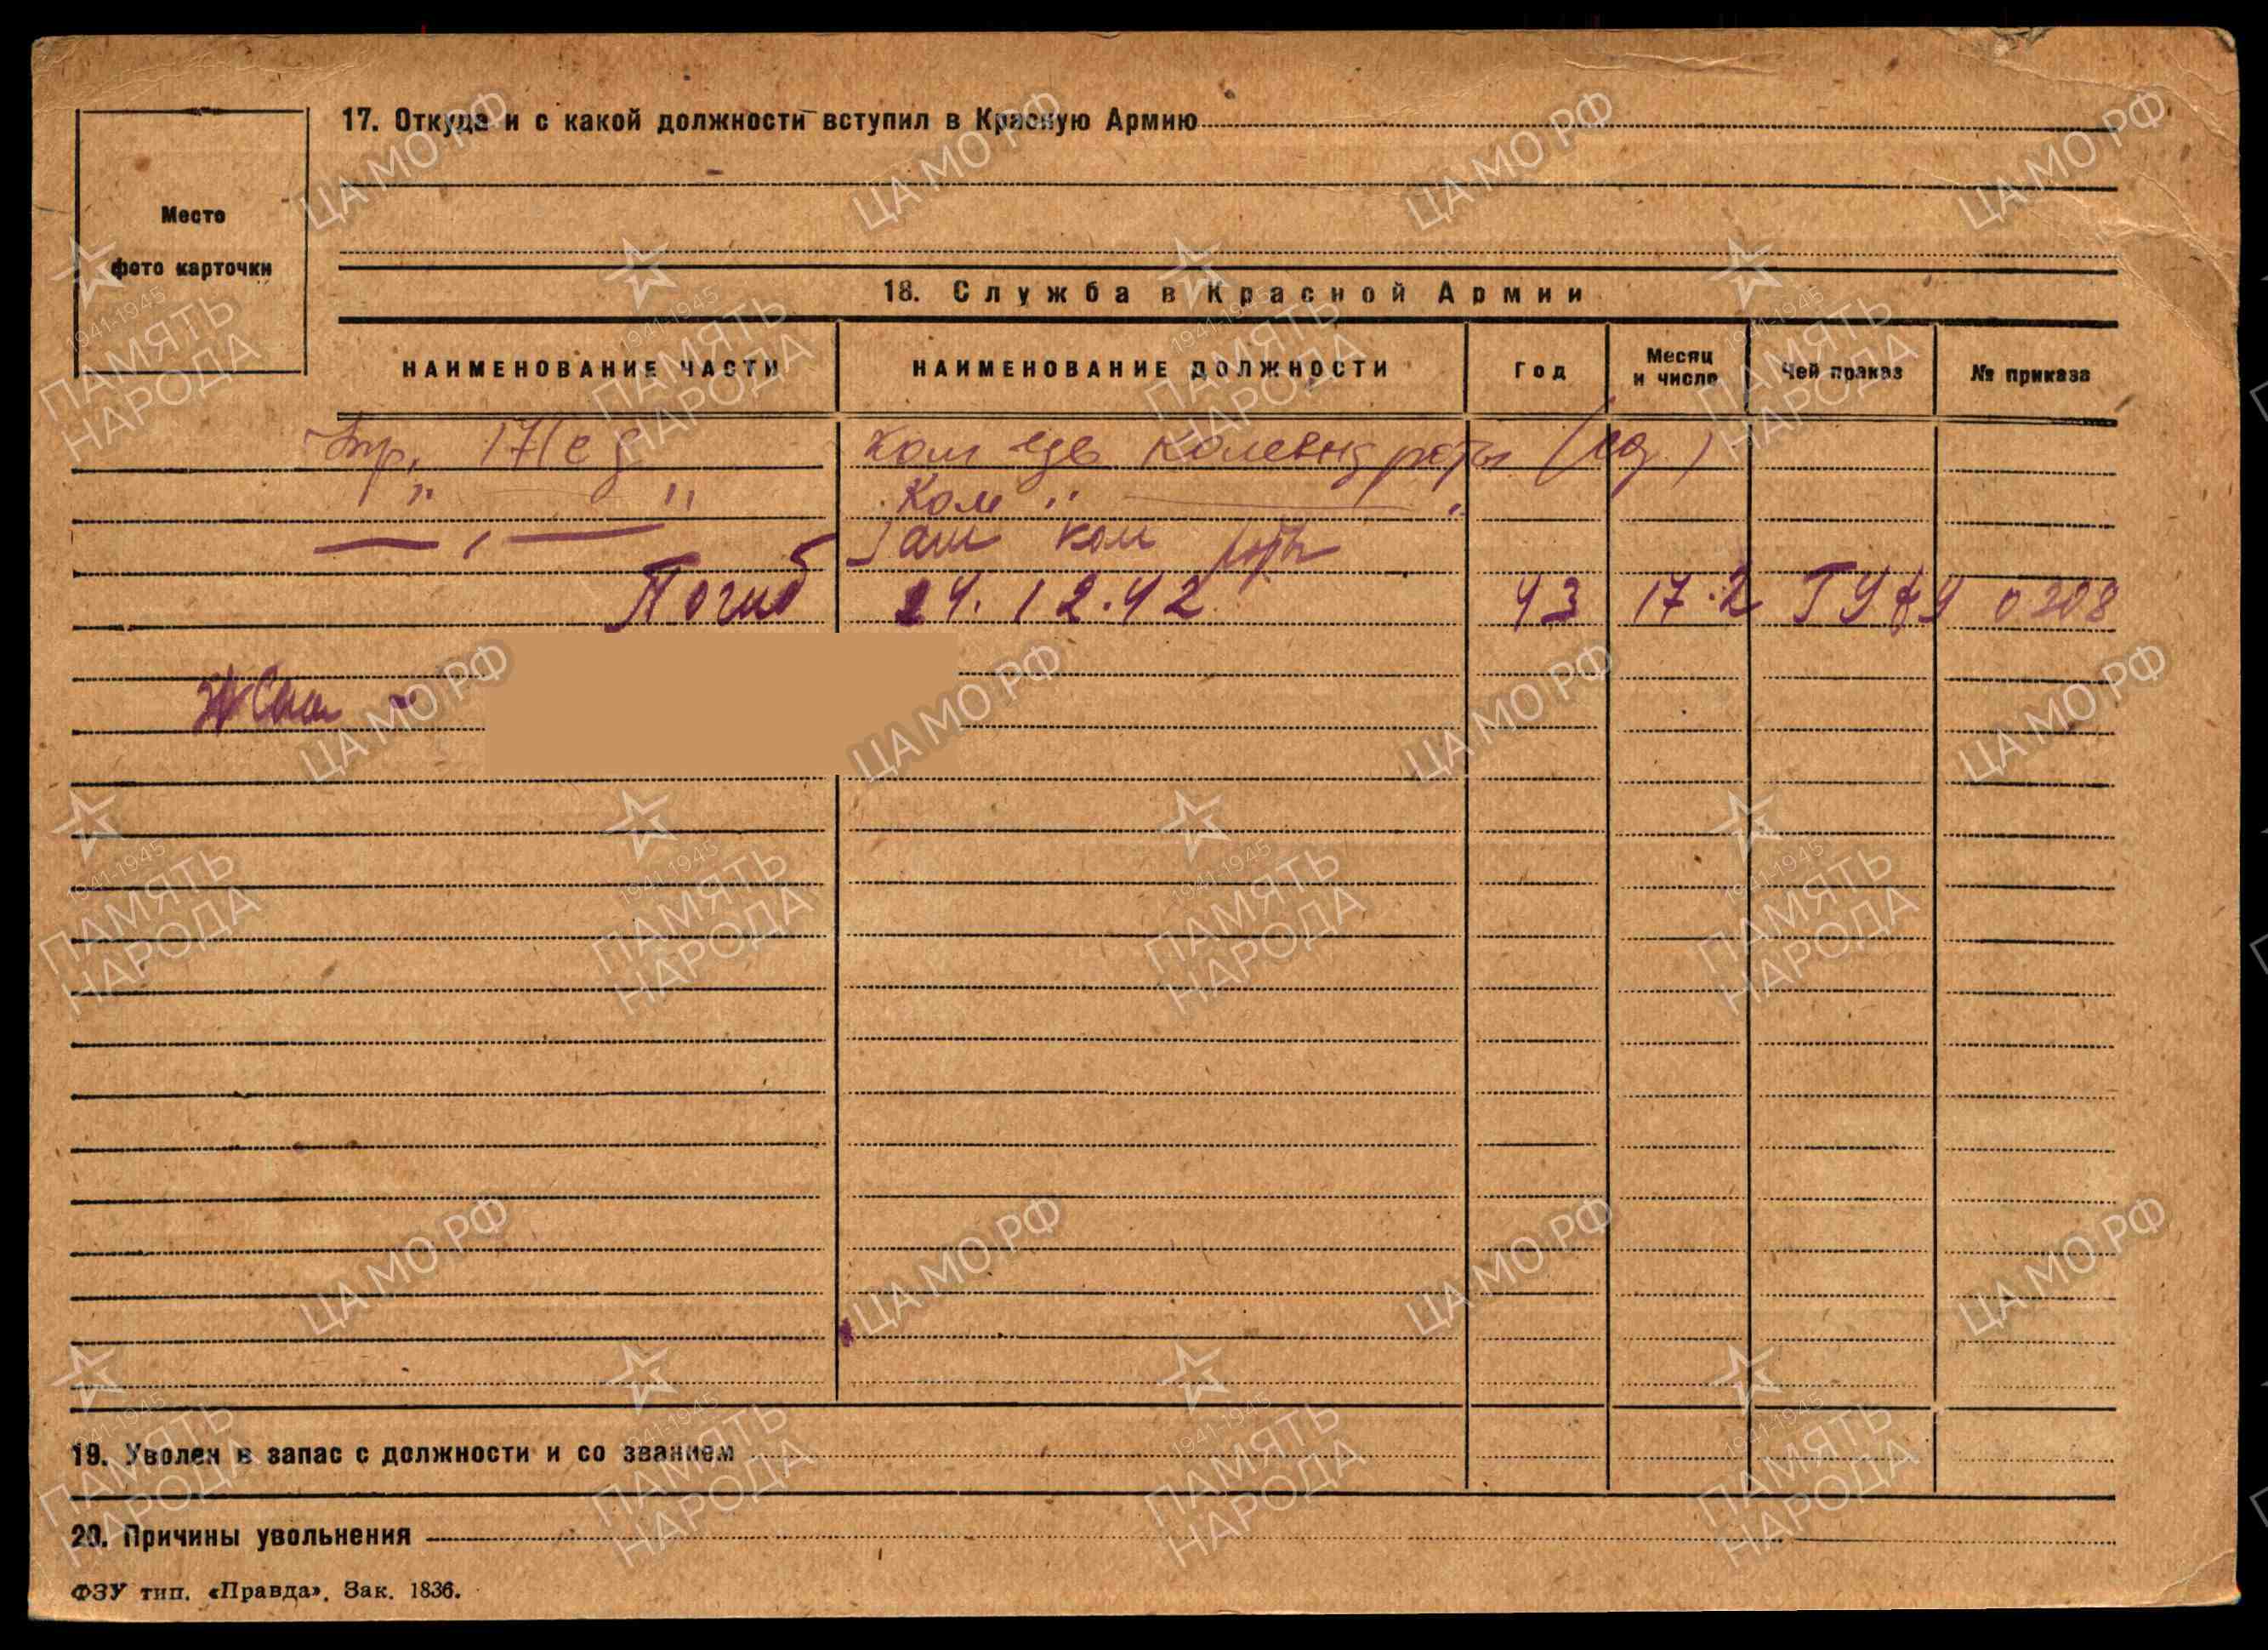 17. Откуда и с какой должности вступил в Красную Армию
Место
фото карточки
18. Служба в Красной Армии
НАИМЕНОВАНИЕ ЧАСТИ НАИМЕНОВАНИЕ ДОЛЖНОСТИ Год Месяц и число Чей приказ № приказа
171 с д Ком роты
" " Ком " "
Зам ком роты
Погиб 24.12.42 43 17.2 ГУФУ 0308
Жена -
19. Уволен в запас с должности и со званием
20. Причины увольнения
ФЗУ тип. «Правда». Зак. 1836.
ЦА МО РФ
1941-1945
ПАМЯТЬ
НАРОДА